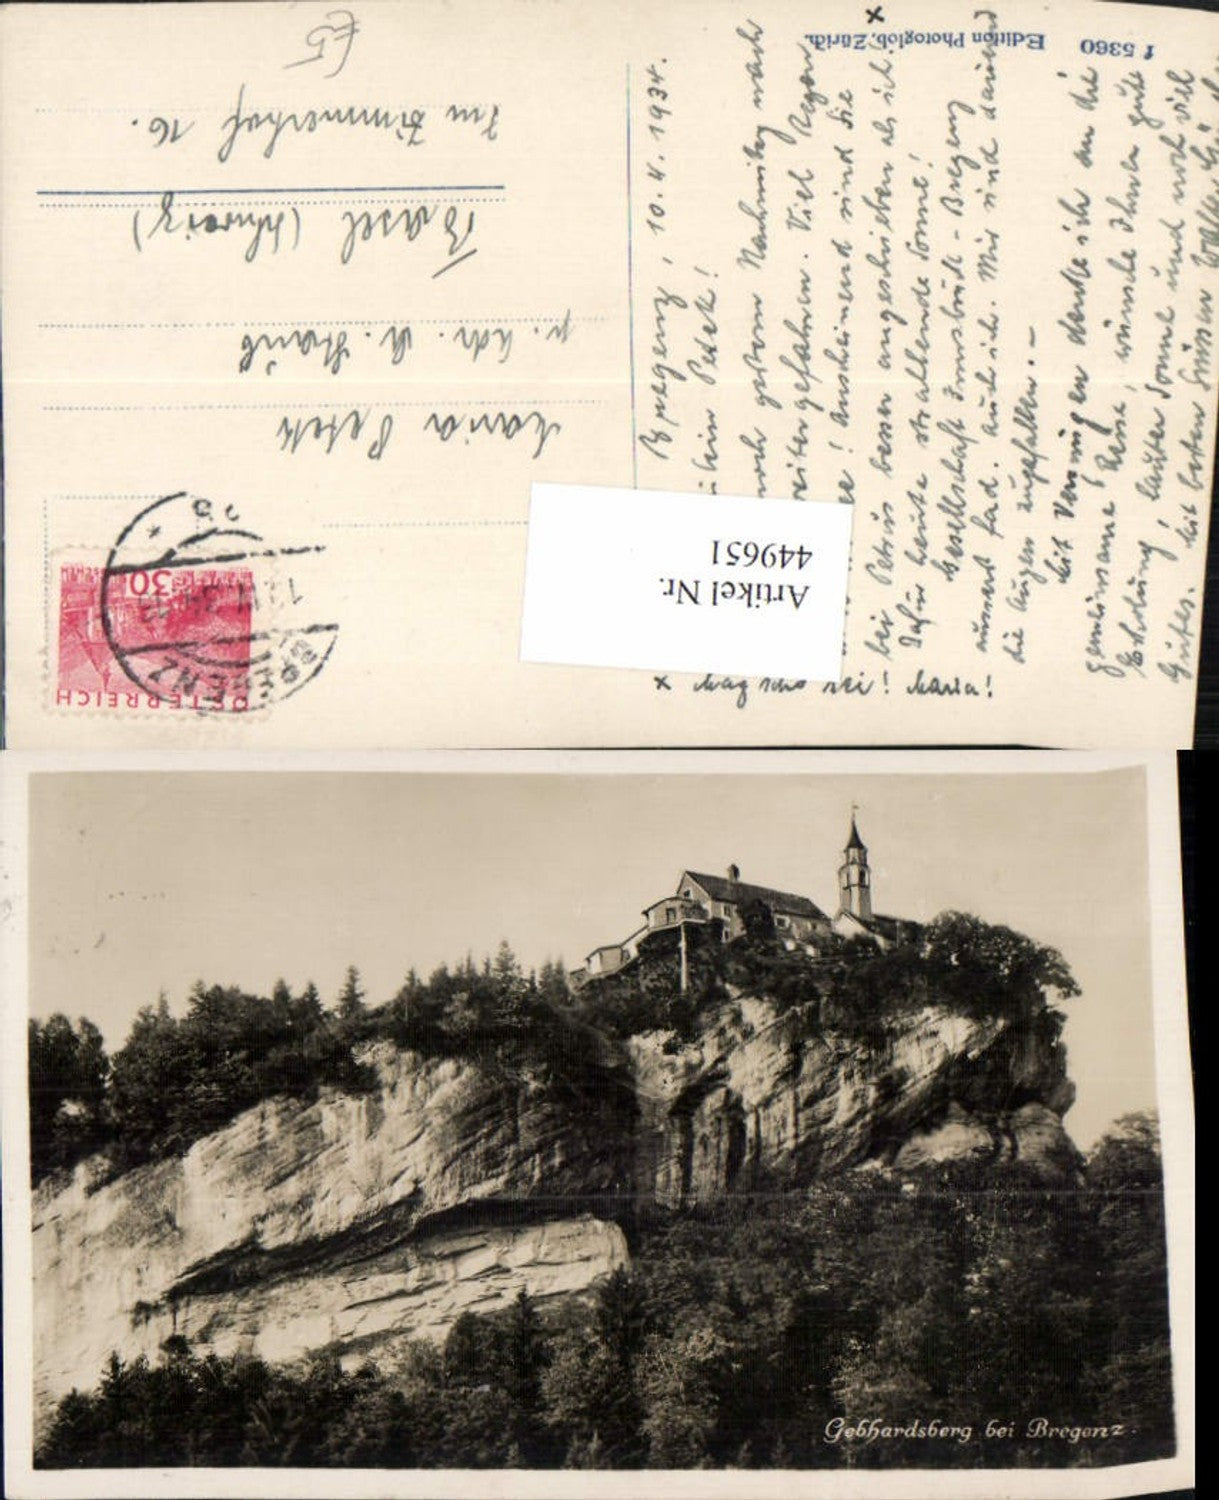 Bregenz, 10.4.1934.
Petek!
noch gestern Nachmittag nach
gefahren. Viel Regen
! Anscheinend sind Sie
bei Petrus besser angeschrieben als ich. x
Dafür heute strahlende Sonne!
Gesellschaft Innsbruck - Bregenz
äusserst fad. auch ich. Mir sind dauernd
die Augen zugefallen. -
Mit Vergnügen denke ich an die
gemeinsame Reise, wünsche Ihnen gute
Erholung, lauter Sonne und noch viel
Gutes. Mit besten Grüssen
x Mag scho sei! Maria!
Maria Petek
p. Adr. A. Straub
Basel (Schweiz)
Im Zimmerhof 16.
E5
ÖSTERREICH
30
BREGENZ
Artikel Nr.
449651
f 5360 Edition Photoglob, Zürich.
Gebhardsberg bei Bregenz.